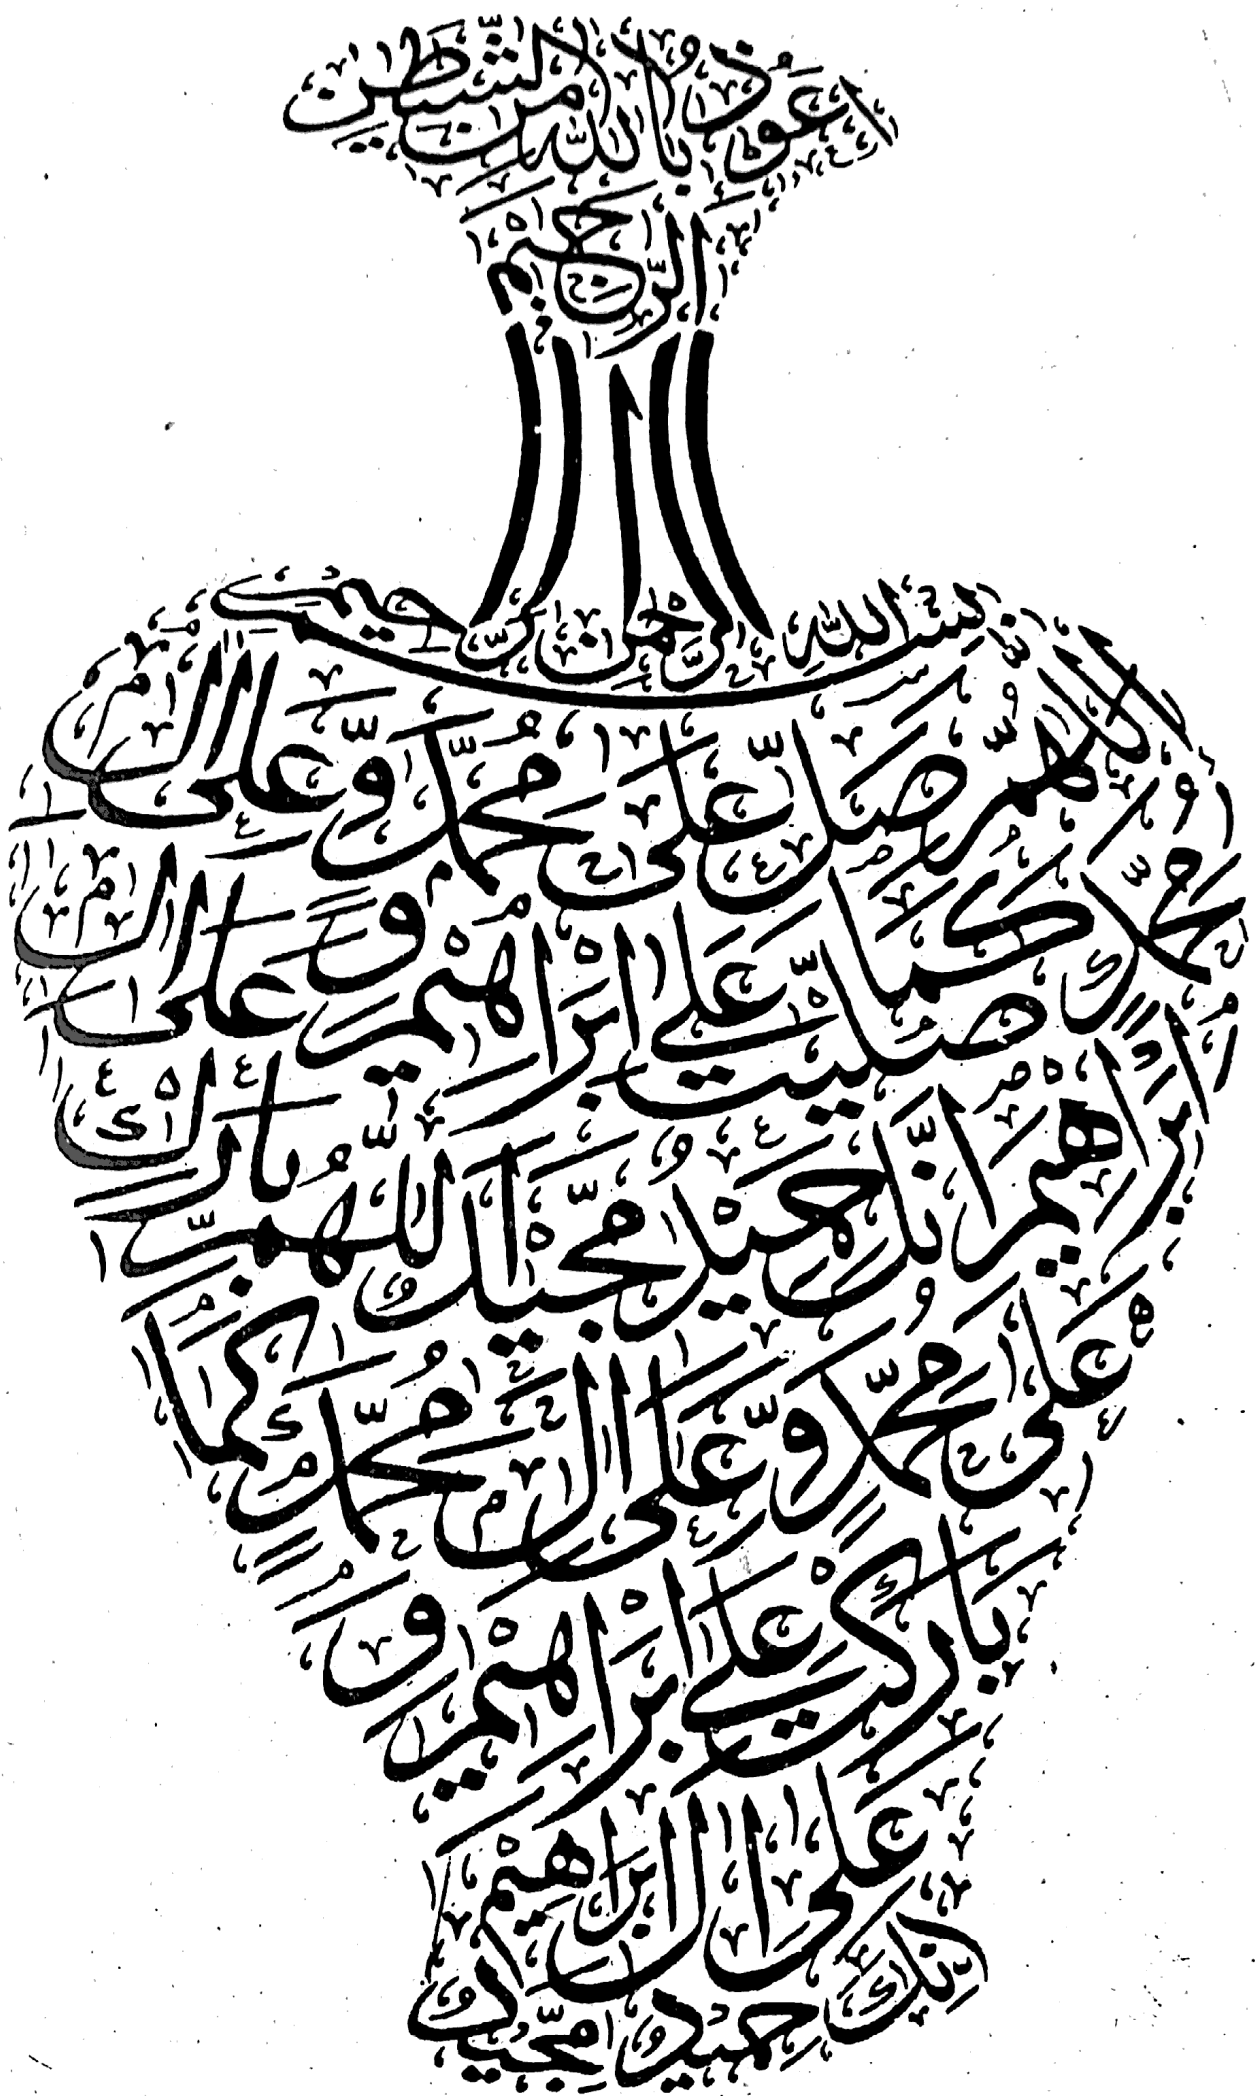 اعوذ بالله من الشيطن
الرجيم
بسم الله الرحمن الرحيم
اللهم صل على محمد وعلى ال
محمد كما صليت على ابراهيم وعلى ال
ابراهيم انك حميد مجيد اللهم بارك
على محمد وعلى ال محمد كما
باركت على ابراهيم و
على ال ابراهيم
انك حميد مجيد